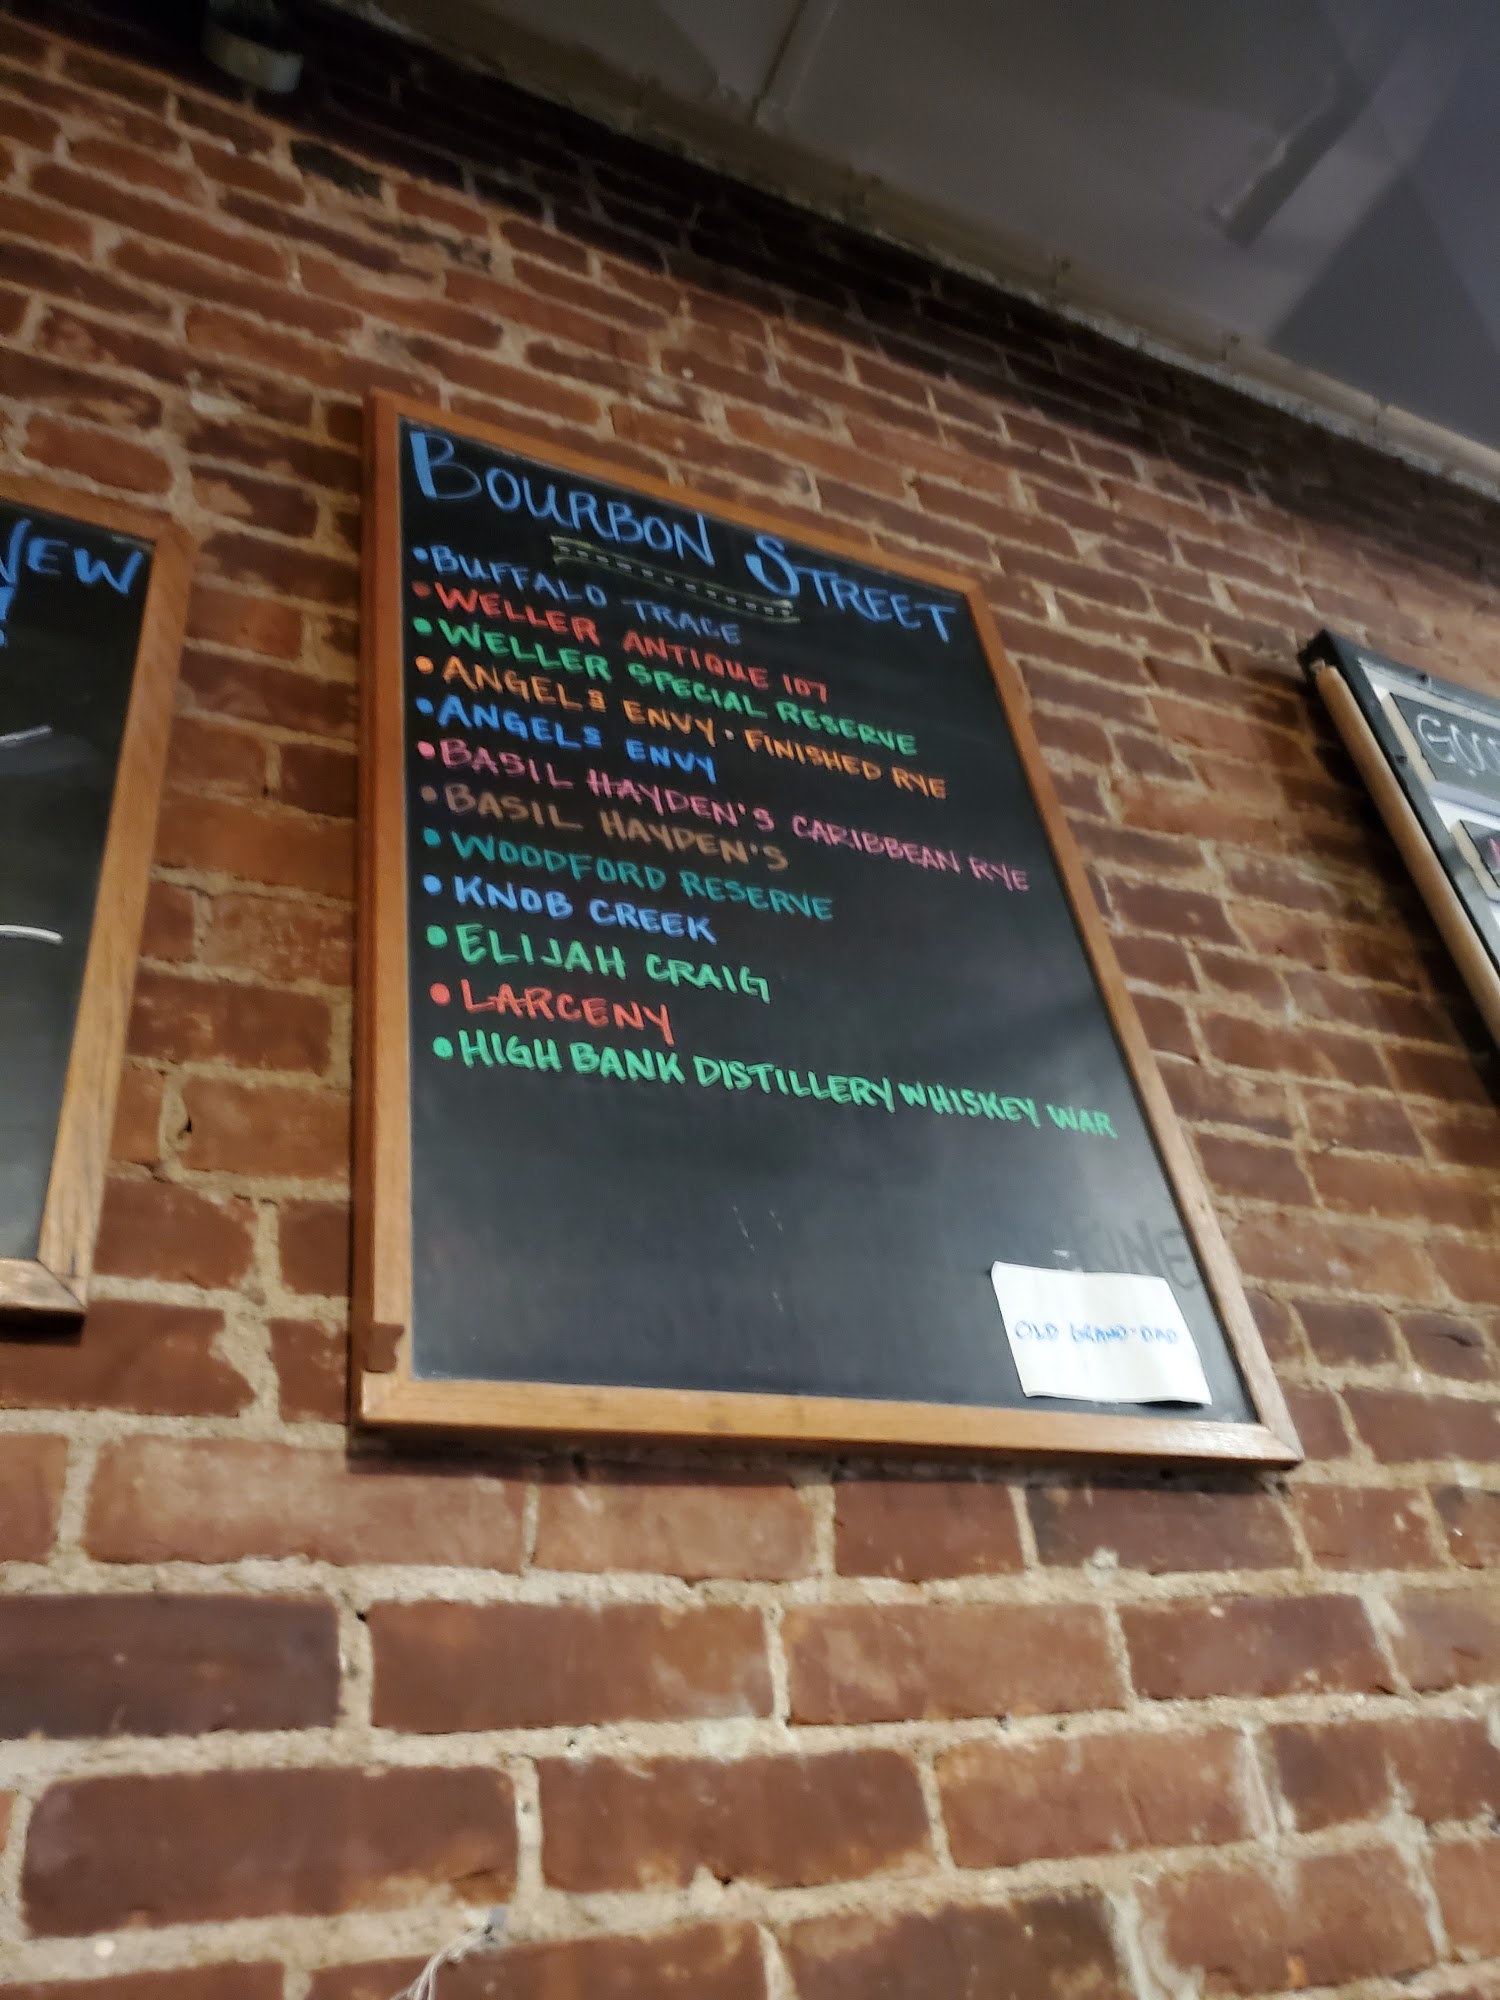 BOURBON STREET
•BUFFALO TRACE
•WELLER ANTIQUE 107
•WELLER SPECIAL RESERVE
•ANGELS ENVY • FINISHED RYE
•ANGELS ENVY
•BASIL HAYDEN'S CARIBBEAN RYE
•BASIL HAYDEN'S
•WOODFORD RESERVE
•KNOB CREEK
•ELIJAH CRAIG
•LARCENY
•HIGH BANK DISTILLERY WHISKEY WAR
OLD GRAND-DAD